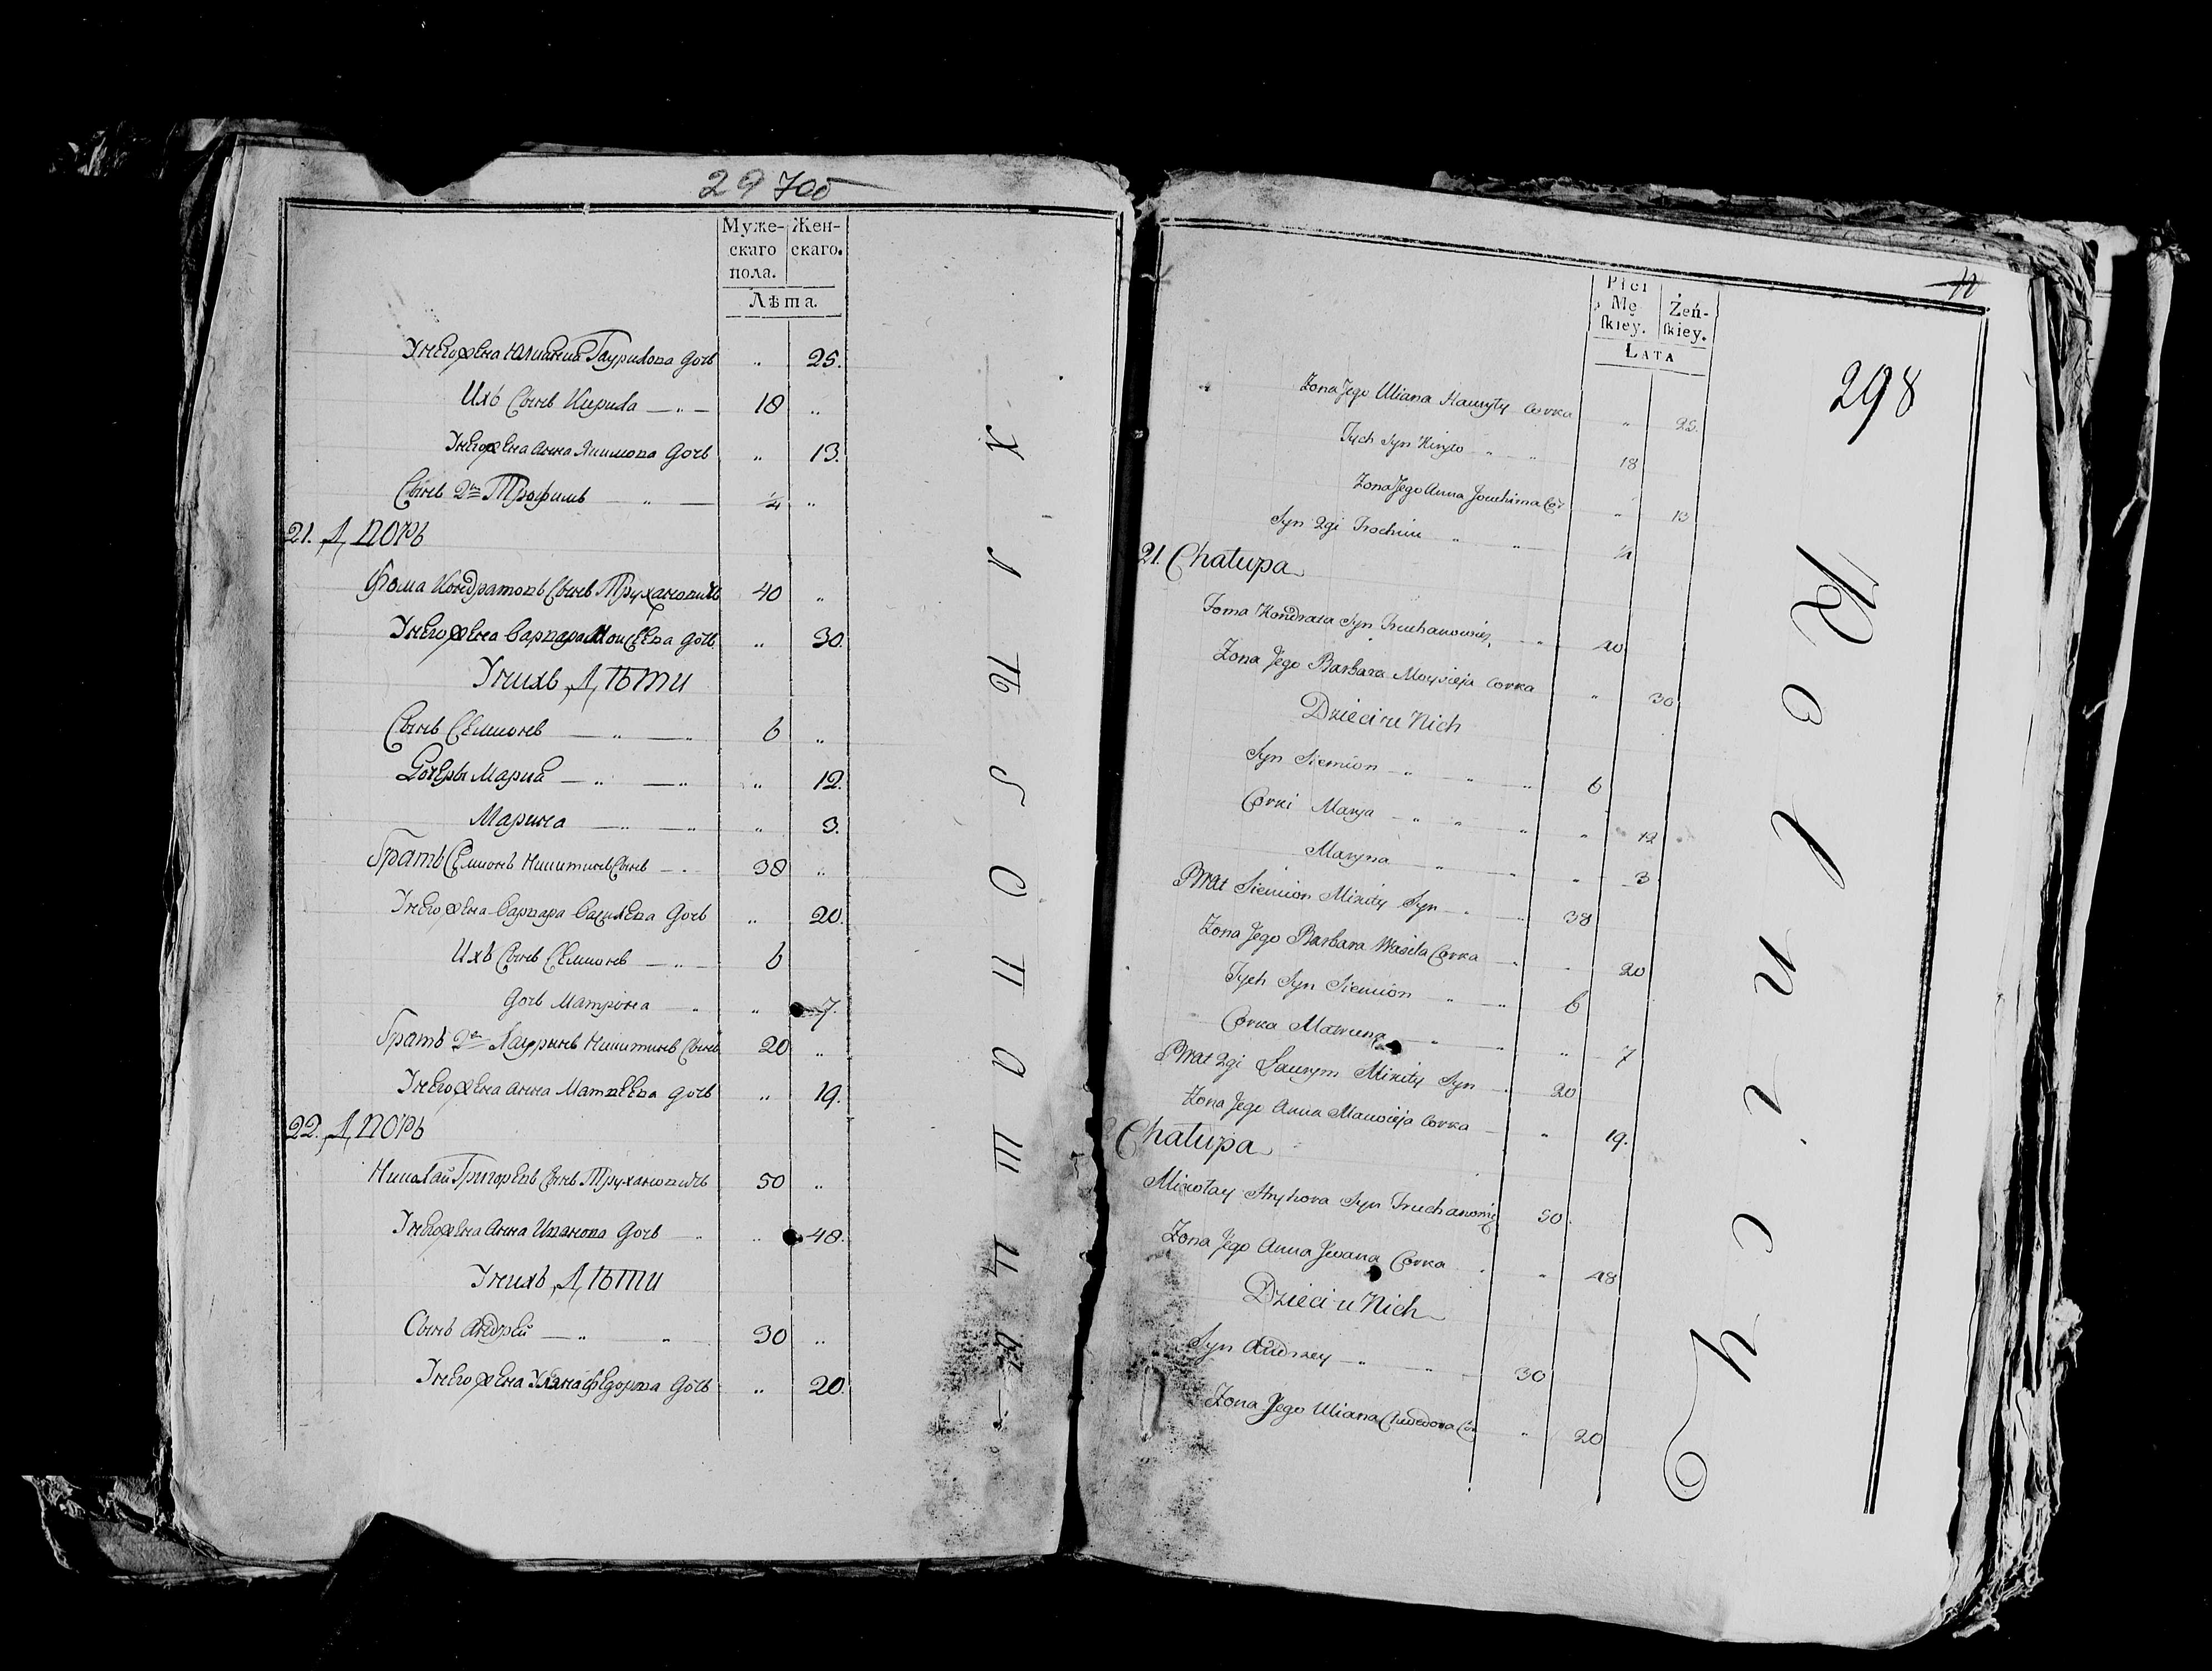 29 700
Муже-
скаго
пола.
Жен-
скаго.
Лѣта.
У него жена Юлианна Гаурилова дочь „ 25.
Ихъ Сынъ Кирила — „ — 18 „
У него жена Анна Якимова дочь „ 13.
Сынъ 2й Трофимъ — „ — ¼ „
21. Дворъ
Фома Кондратовъ Сынъ Трухановичь 40 „
У него жена Варвара Моисеева дочь „ 30.
У нихъ Дѣти
Сынъ Семионъ — „ — „ 6 „
Дочеры Мария — „ — „ „ 12.
Марина — „ — „ „ 3.
Братъ Семионъ Никитинъ Сынъ — „ 38 „
У него жена Варвара Василева дочь „ 20.
Ихъ Сынъ Семионъ — „ 6
дочь Матрiона — „ „ 7.
Братъ 2й Лаурынъ Никитинъ Сынъ 20 „
У него жена Анна Матвеева дочь „ 19.
22. Дворъ
Николай Григорьевъ Сынъ Трухановичь 50 „
У него жена Анна Иванова дочь — „ „ 48.
У нихъ Дѣти
Сынъ Андрей — „ „ 30 „
У него жена Улiана Федорова дочь „ 20.
Płci
Mę-
skiey.
Żeń-
skiey.
Lata
298
Zona Jego Uliana Hauryły Corka „ 25.
Tych Syn Kiryło „ „ 18
Zona Jego Anna Jouchima Cór „ 13
Syn 2gi Trochim „ „ ¼
21. Chałupa
Foma Kondrata Syn Truchanowicz „ 40
Zona Jego Barbara Moysieja Corka „ 30
Dzieci u Nich
Syn Siemion „ „ „ 6
Corki Marja „ „ „ „ 12
Maryna „ „ „ 3
Brat Siemion Mikity Syn „ „ 38
Zona Jego Barbara Wasila Corka „ „ 20
Tych Syn Siemion „ „ 6
Corka Matruna „ „ „ 7
Brat 2gi Laurym Mikity Syn „ 20
Zona Jego Anna Mawieja Corka „ 19.
Chałupa
Mikołay Hryhora Syn Truchanowicz 50
Zona Jego Anna Jwana Corka „ „ 48
Dzieci u Nich
Syn Andrzey — „ „ 30
Zona Jego Uliana Chwedora Cór „ 20
Rolnicy